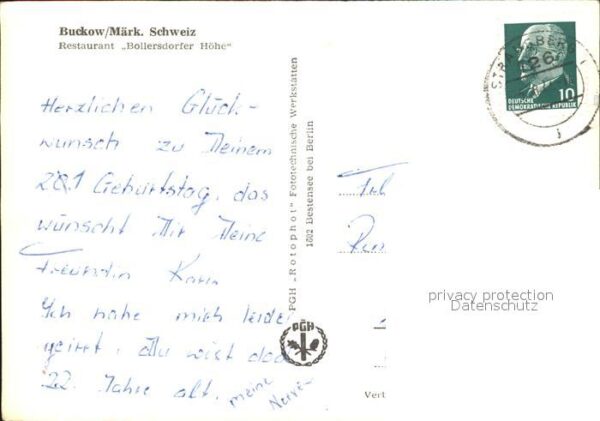 Buckow/Märk. Schweiz
Restaurant „Bollersdorfer Höhe"
Herzlichen Glück-
wunsch zu Deinem
Geburtstag, das
wünscht Dir Deine
Freundin
Ich habe mich leider
geirrt. Du wist doch
22. Jahre alt. meine
Nerve-
PGH „Rotophot" Fototechnische Werkstätten
1502 Bestensee bei Berlin
PGH
STRAUSBERG
10
DEUTSCHE
DEMOKRATISCHE REPUBLIK
privacy protection
Datenschutz
Vert